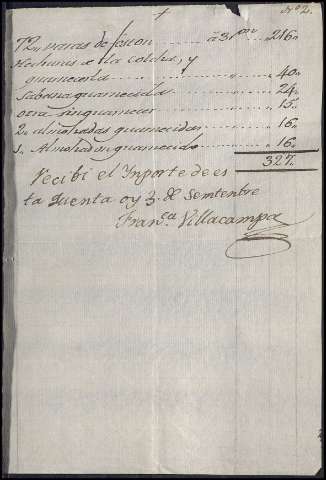 Nº 2.
72,, varas de facon ........ à 3 ,, 216,,
Hechuras de la colcha, y
guarnecerla ........ ,, 40,,
Sabana guarnecida ........ ,, 24,,
otra sin guarnecer ........ ,, 15,,
2,, almohadas guarnecidas ........ ,, 16,,
1,, Almohadon guarnecido ........ ,, 16,,
327,,
Recibi el Inporte de es
ta Quenta oy 3. de Semtenbre
Fran.ca Villacampa